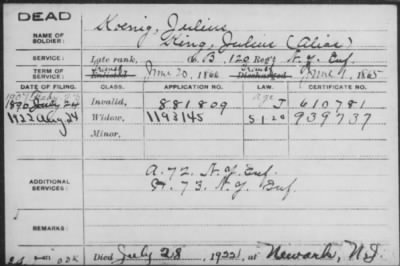 DEAD
Koenig, Julius
NAME OF SOLDIER: King, Julius (Alias)
SERVICE: Late rank, Co. B, 120 Reg't N. Y. Inf.
TERM OF SERVICE: Enlisted June 20, 1861 Discharged June 1, 1865
DATE OF FILING. CLASS. APPLICATION NO. LAW. CERTIFICATE NO.
1890 July 24 Invalid, 881809 J 610781
1922 Aug 24 Widow, 1193145 S 1-20 939737
Minor,
ADDITIONAL SERVICES: A. 72. N.Y. Inf.
H. 73. N.Y. Inf.
REMARKS:
Died July 28, 1922, at Newark, N.J.